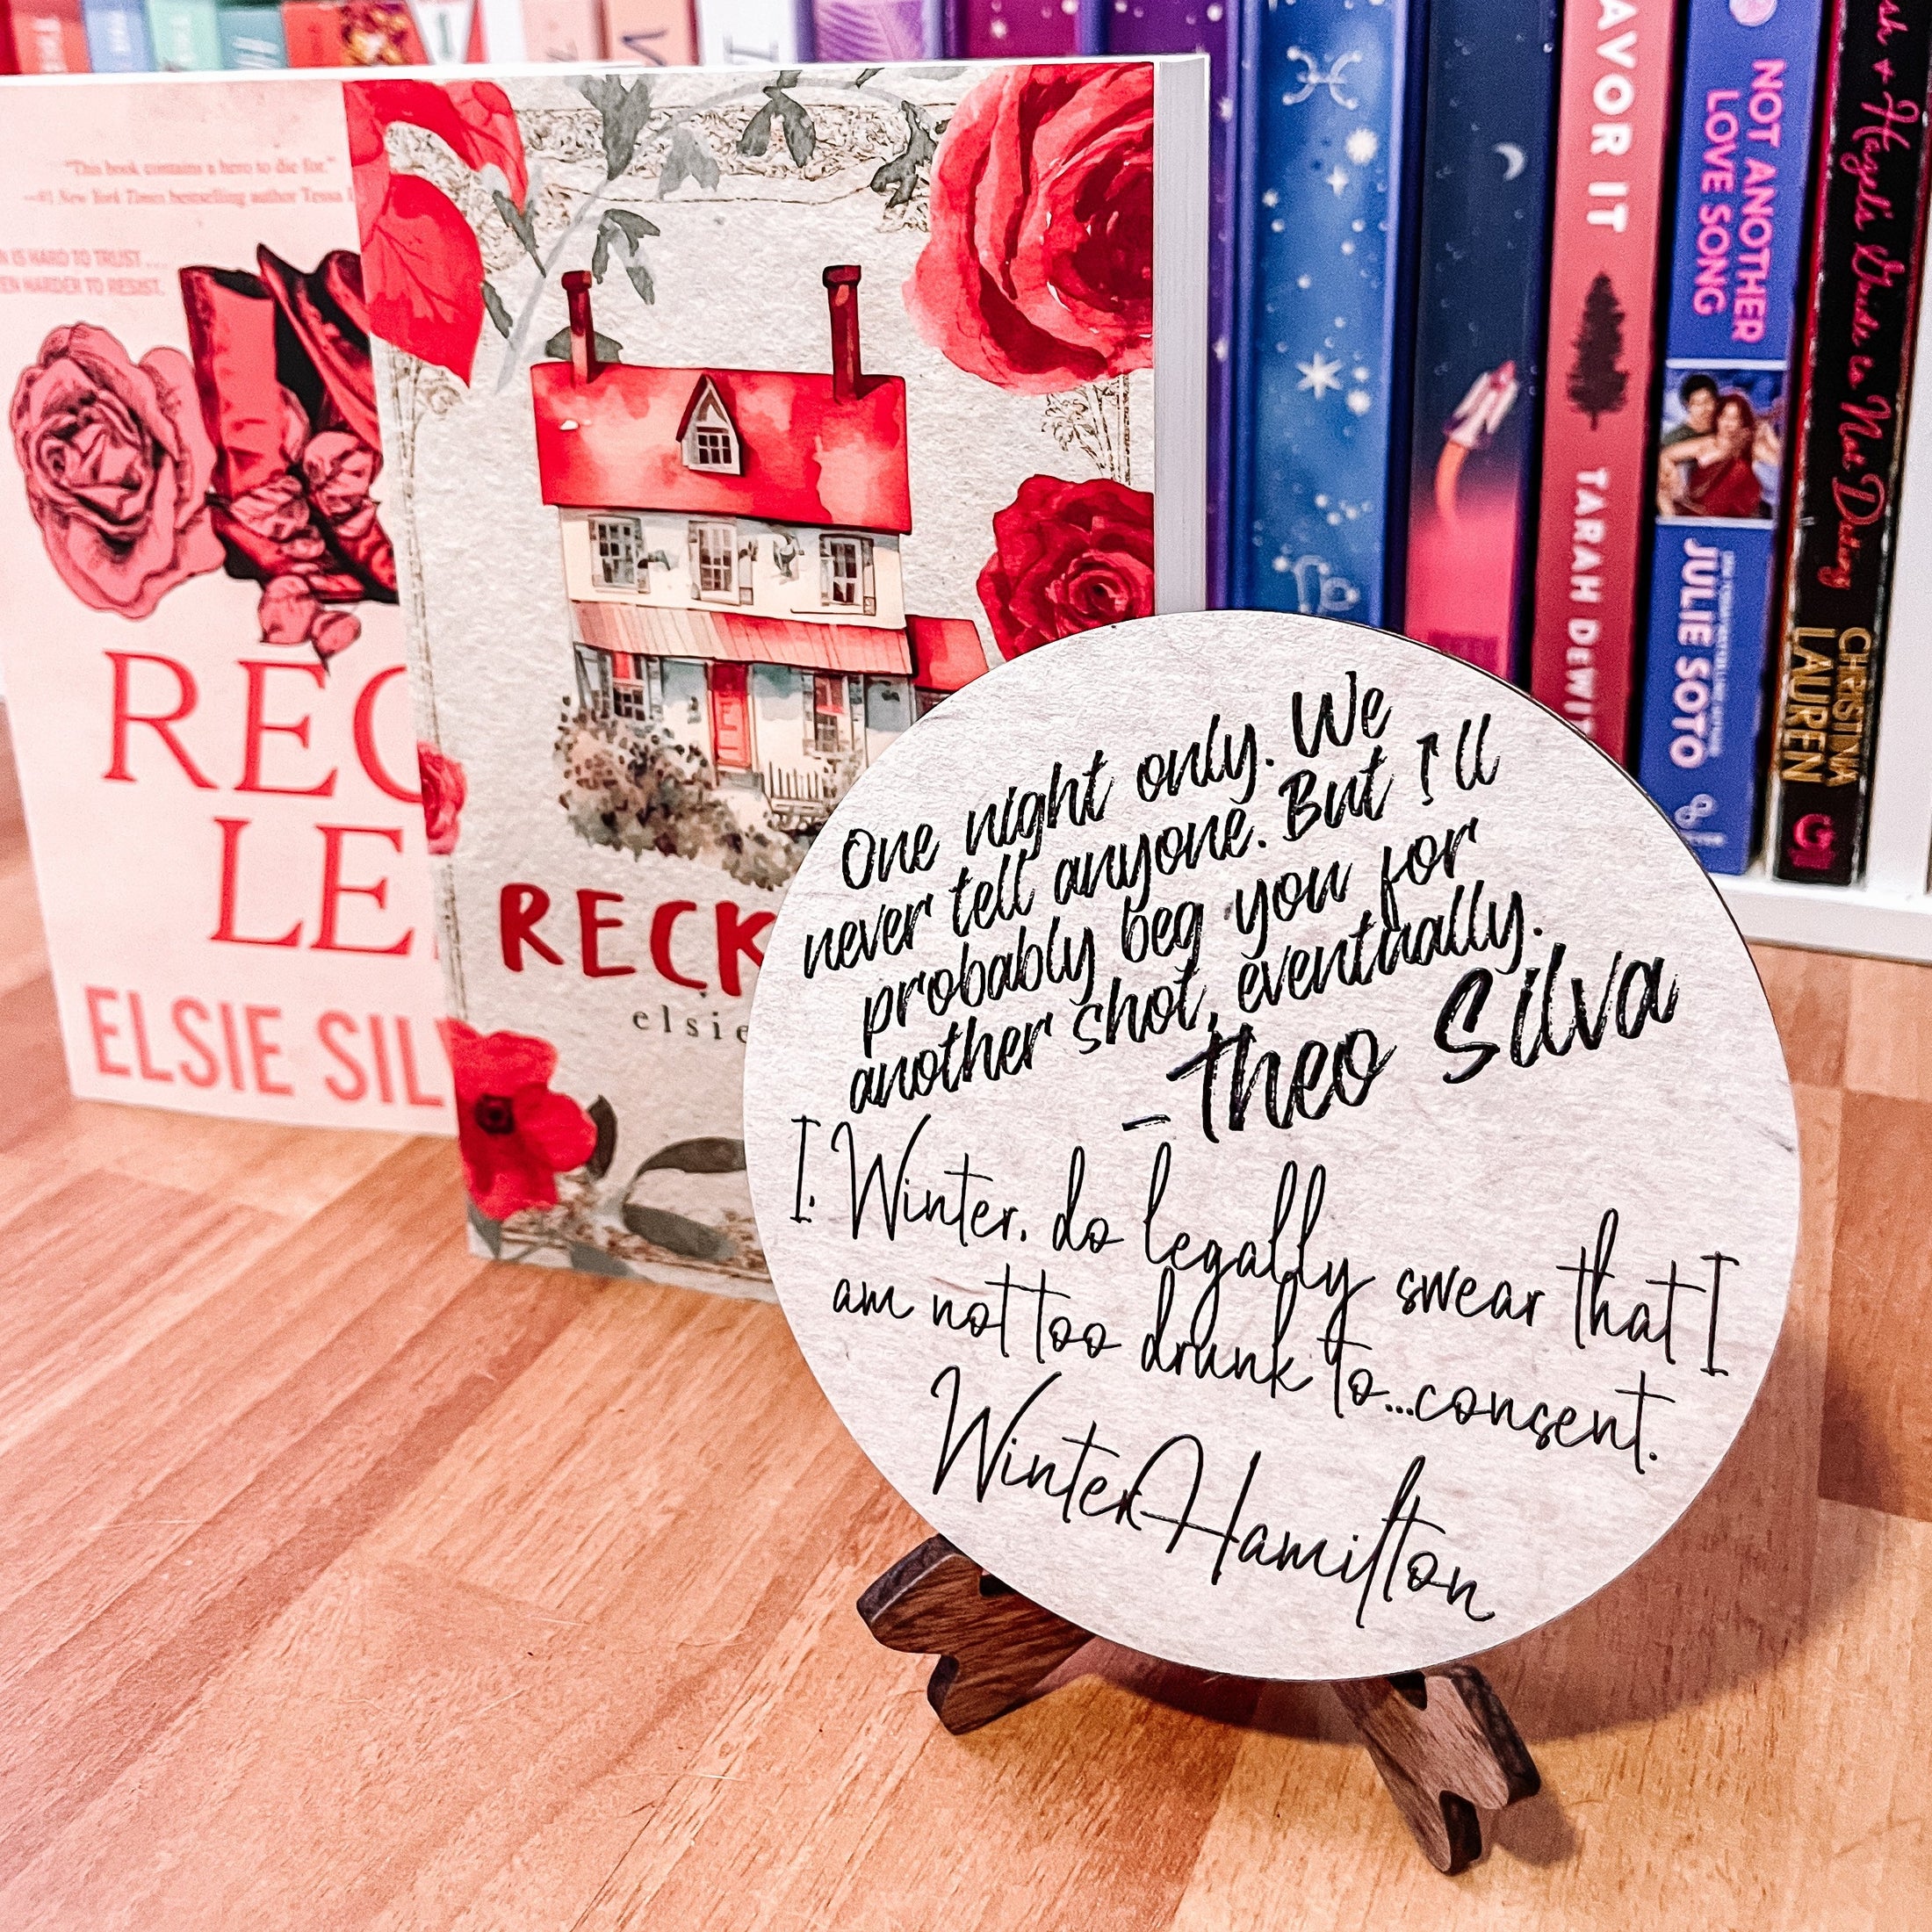 "This book contains a hero to die for."
—#1 New York Times bestselling author Tessa
N IS HARD TO TRUST . . .
EN HARDER TO RESIST.
REC
LE
ELSIE SIL
RECK
elsie
One night only. We
never tell anyone. But I'll
probably beg you for
another shot, eventually.
- Theo Silva
I, Winter, do legally swear that I
am not too drunk to...consent.
Winter Hamilton
AVOR IT
TARAH DEWIT
NOT ANOTHER
LOVE SONG
JULIE SOTO
sh + Hazel's Guide to Not Dating
CHRISTINA
LAUREN